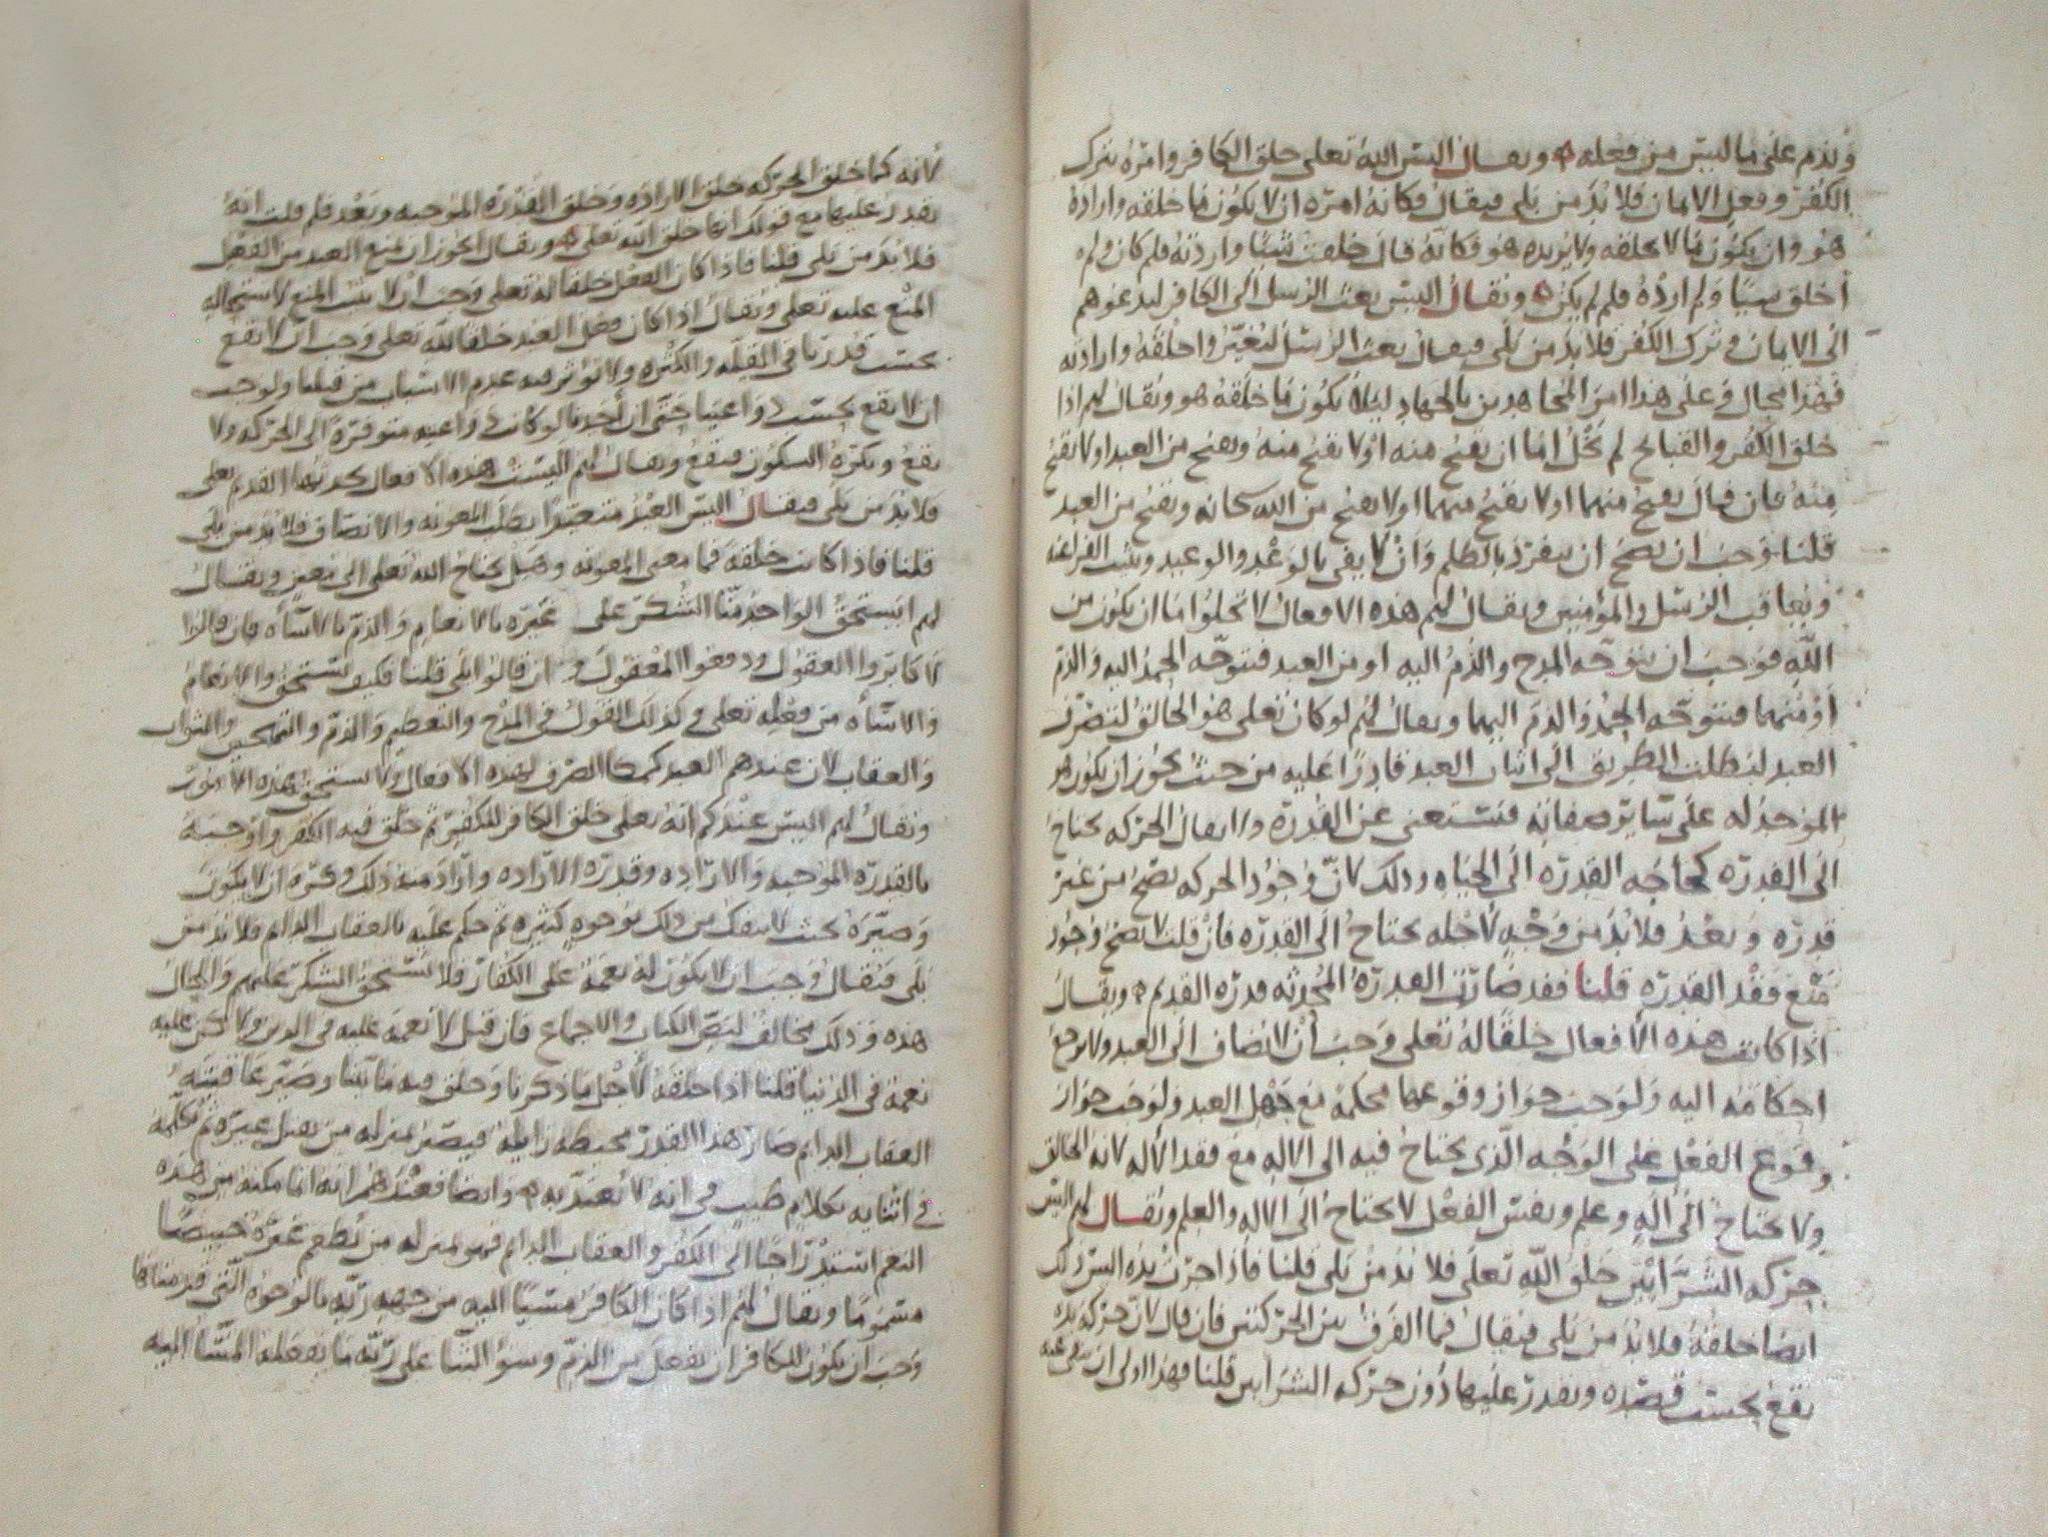 ويذم على ما ليس من فعله ويقال اليس الله تعلى خلق الكافر وامره بترك
الكفر وفعل الايمان فلا بد من بلى فيقال فكانه امره ان لا يكون ما خلقه واراده
هو وان يكون ما لا يخلقه ولا يريده هو فكانه قال خلقت شيئا واردته فلم كان ولم
اخلق شيئا ولم ارده فلم لم يكن ويقال اليس بعث الرسل الى الكافر ليدعوهم
الى الايمان وترك الكفر فلا بد من بلى فيقال بعث الرسل ليغيروا خلقه وارادته
فهذا محال وعلى هذا امر المجاهدين بالجهاد ليلا يكون ما خلقه هو ويقال لهم اذا
خلق الكفر والقبائح لم يخل اما ان يقبح منه او لا يقبح منه ويقبح من العبد او لا يقبح
منه فان قال يقبح منهما او لا يقبح منهما او لا يقبح من الله سبحانه ويقبح من العبد
قلنا وجب ان يصح ان ينفرد بالظلم وان لا يفي بالوعد والوعيد ويثيب الفراعنه
ويعاقب الرسل والمؤمنين ويقال لهم هذه الافعال لا تخلوا اما ان يكون من
الله فوجب ان يتوجه المدح والذم اليه او من العبد فيتوجه الحمد اليه والذم
او منهما فيتوجه الحمد والذم اليهما ويقال لهم لو كان تعلى هو الخالق لتصرف
العبد لبطلت الطريق الى اثبات العبد قادرا عليه من حيث يجوز ان يكون هو
الموجد له على ساير صفاته فيستغنى عن القدره ولا يقال الحركه تحتاج
الى القدره كحاجه القدره الى الحياه وذلك لان وجود الحركه يصح من غير
قدره وبعد فلا بد من وجه لاجله يحتاج الى القدره فان قلت لا يصح وجود
مع فقد القدره قلنا فقد صارت القدره المحدثه قدره القديم ويقال
اذا كانت هذه الافعال خلقا له تعلى وجب ان لا تضاف الى العبد ولا يرجع
احكامه اليه ولوجب جواز وقوعها محكمة مع جهل العبد ولوجب جواز
وقوع الفعل على الوجه الذي يحتاج فيه الى الاله مع فقد الاله لانه الخالق
ولا يحتاج الى اله وعلم ونفس الفعل لا يحتاج الى الاله والعلم ويقال لهم اليس
حركه الشرايين خلق الله تعلى فلا بد من بلى قلنا فاذا حرك يده اليس ذلك
ايضا خلقه فلا بد من بلى فيقال فما الفرق بين الحركتين فان قال لان حركة يده
يقع بحسب قصده ويقدر عليها دون حركه الشرايين قلنا فهذا اولى ان
لانه كما خلق الحركه خلق الاراده وخلق القدره الموجبه وبعد فلم قلت انه
يقدر عليها مع قولك انها خلق الله تعلى ويقال ايجوز ان يمنع العبد من الفعل
فلا بد من بلى قلنا فاذا كان الفعل خلقا له تعلى وجب ان لا يثبت المنع لاستحاله
المنع عليه تعلى ويقال اذا كان فعل العبد خلقا لله تعلى وجب ان لا يقع
بحسب قدرنا في القله والكثره ولا يؤثر فيه عدم الاسباب من قبلنا ولوجب
ان لا يقع بحسب دواعينا حتى ان احدنا لو كانت دواعيه متوفرة الى الحركه ولا
يقع ويكره السكون فيقع ويقال لهم اليست هذه الافعال يحدثها القديم تعلى
فلا بد من بلى فيقال اليس العبد متعبدا بطلب المعونه والانصاف فلا بد من بلى
قلنا فاذا كانت خلقه فما معنى المعونه وهل يحتاج الله تعلى الى معين ويقال
لهم ايستحق الواحد منا الشكر على غيره بالانعام والذم بالاساه فان قالوا
لا كابروا العقول ودفعوا المعقول وان قالوا بلى قلنا فكيف يستحق والانعام
والاساه من فعله تعلى وكذلك القول في المدح والتعظيم والذم والتهجين والثواب
والعقاب لان عندهم العبد لهذه الافعال ولا يستحق هذه الامور
ويقال لهم اليس عندكم انه تعلى خلق الكافر للكفر ثم خلق فيه الكفر واوجبه
بالقدره الموجبه والاراده وقدره الاراده واراد منه ذلك وكره ان لا يكون
وصيره بحيث لا ينفك من ذلك بوجوه كثيره ثم حكم عليه بالعقاب الدايم فلا بد من
بلى فيقال وجب ان لا يكون له نعمة على الكفار فلا يستحق الشكر عليهم والحال
هذه وذلك مخالف لنص الكتاب والاجماع فان قيل لا نعمة عليه في الدين ولكن عليه
نعمة في الدنيا قلنا اذا خلقه لاجل ما ذكرنا وخلق فيه ما بينا وصير عاقبته
العقاب الدايم صار هذا القدر محبطه زايله فيصير بمنزله من يقتل غيره ثم يكلمه
في اثنايه بكلام طيب في انه لا يعتد به وايضا فعندهم انه انما مكنه من هذه
النعم استدراجا الى الكفر والعقاب الدايم فهو بمنزله من يطعم غيره خبيصا
مسموما ويقال لهم اذا كان الكافر مسيئا اليه من جهه ربه بالوجوه التي قدمناها
وجب ان يكون للكافر ان يفعل من الذم وسوء الثنا على ربه ما يفعله المسا اليه